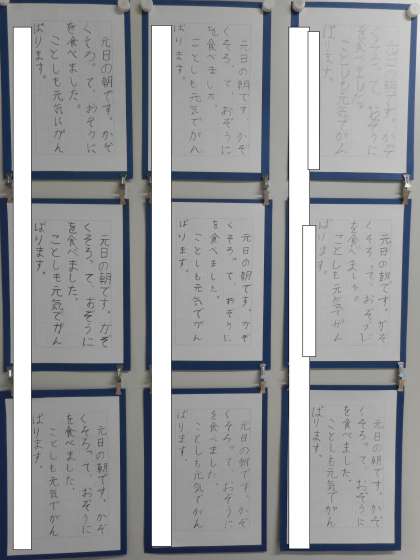 元日の朝です。かぞ
くそろって、おぞうに
を食べました。
ことしも元気でがん
ばります。
元日の朝です。かぞ
くそろって、おぞうに
を食べました。
ことしも元気でがん
ばります。
元日の朝です。かぞ
くそろって、おぞうに
を食べました。
ことしも元気でがん
ばります。
元日の朝です。かぞ
くそろって、おぞうに
を食べました。
ことしも元気でがん
ばります。
元日の朝です。かぞ
くそろって、おぞうに
を食べました。
ことしも元気でがん
ばります。
元日の朝です。かぞ
くそろって、おぞうに
を食べました。
ことしも元気でがん
ばります。
元日の朝です。かぞ
くそろって、おぞうに
を食べました。
ことしも元気でがん
ばります。
元日の朝です。かぞ
くそろって、おぞうに
を食べました。
ことしも元気でがん
ばります。
元日の朝です。かぞ
くそろって、おぞうに
を食べました。
ことしも元気でがん
ばります。